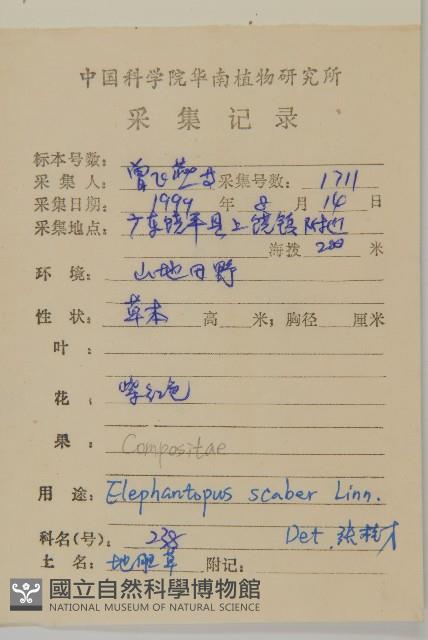 中国科学院华南植物研究所
采集记录
标本号数:
采集人: 曾飞燕 采集号数: 1711
采集日期: 1999 年 8 月 14 日
采集地点: 广东饶平县上饶镇附近
海拨 200 米
环境: 山地田野
性状: 草本 高 米; 胸径 厘米
叶:
花: 紫红色
果:
Compositae
用途: Elephantopus scaber Linn.
科名(号): 238 Det. 张桂才
土名: 地胆草 附记:
國立自然科學博物館
NATIONAL MUSEUM OF NATURAL SCIENCE